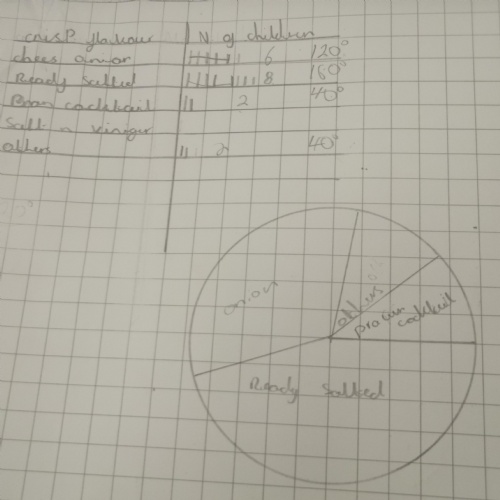 crisp flavour N of children
chees onion 6 120°
Ready salted 8 160°
Pran cocktail 2 40°
Salt n viniger
others 2 40°
onion
others
prowne
cocktail
Ready salted